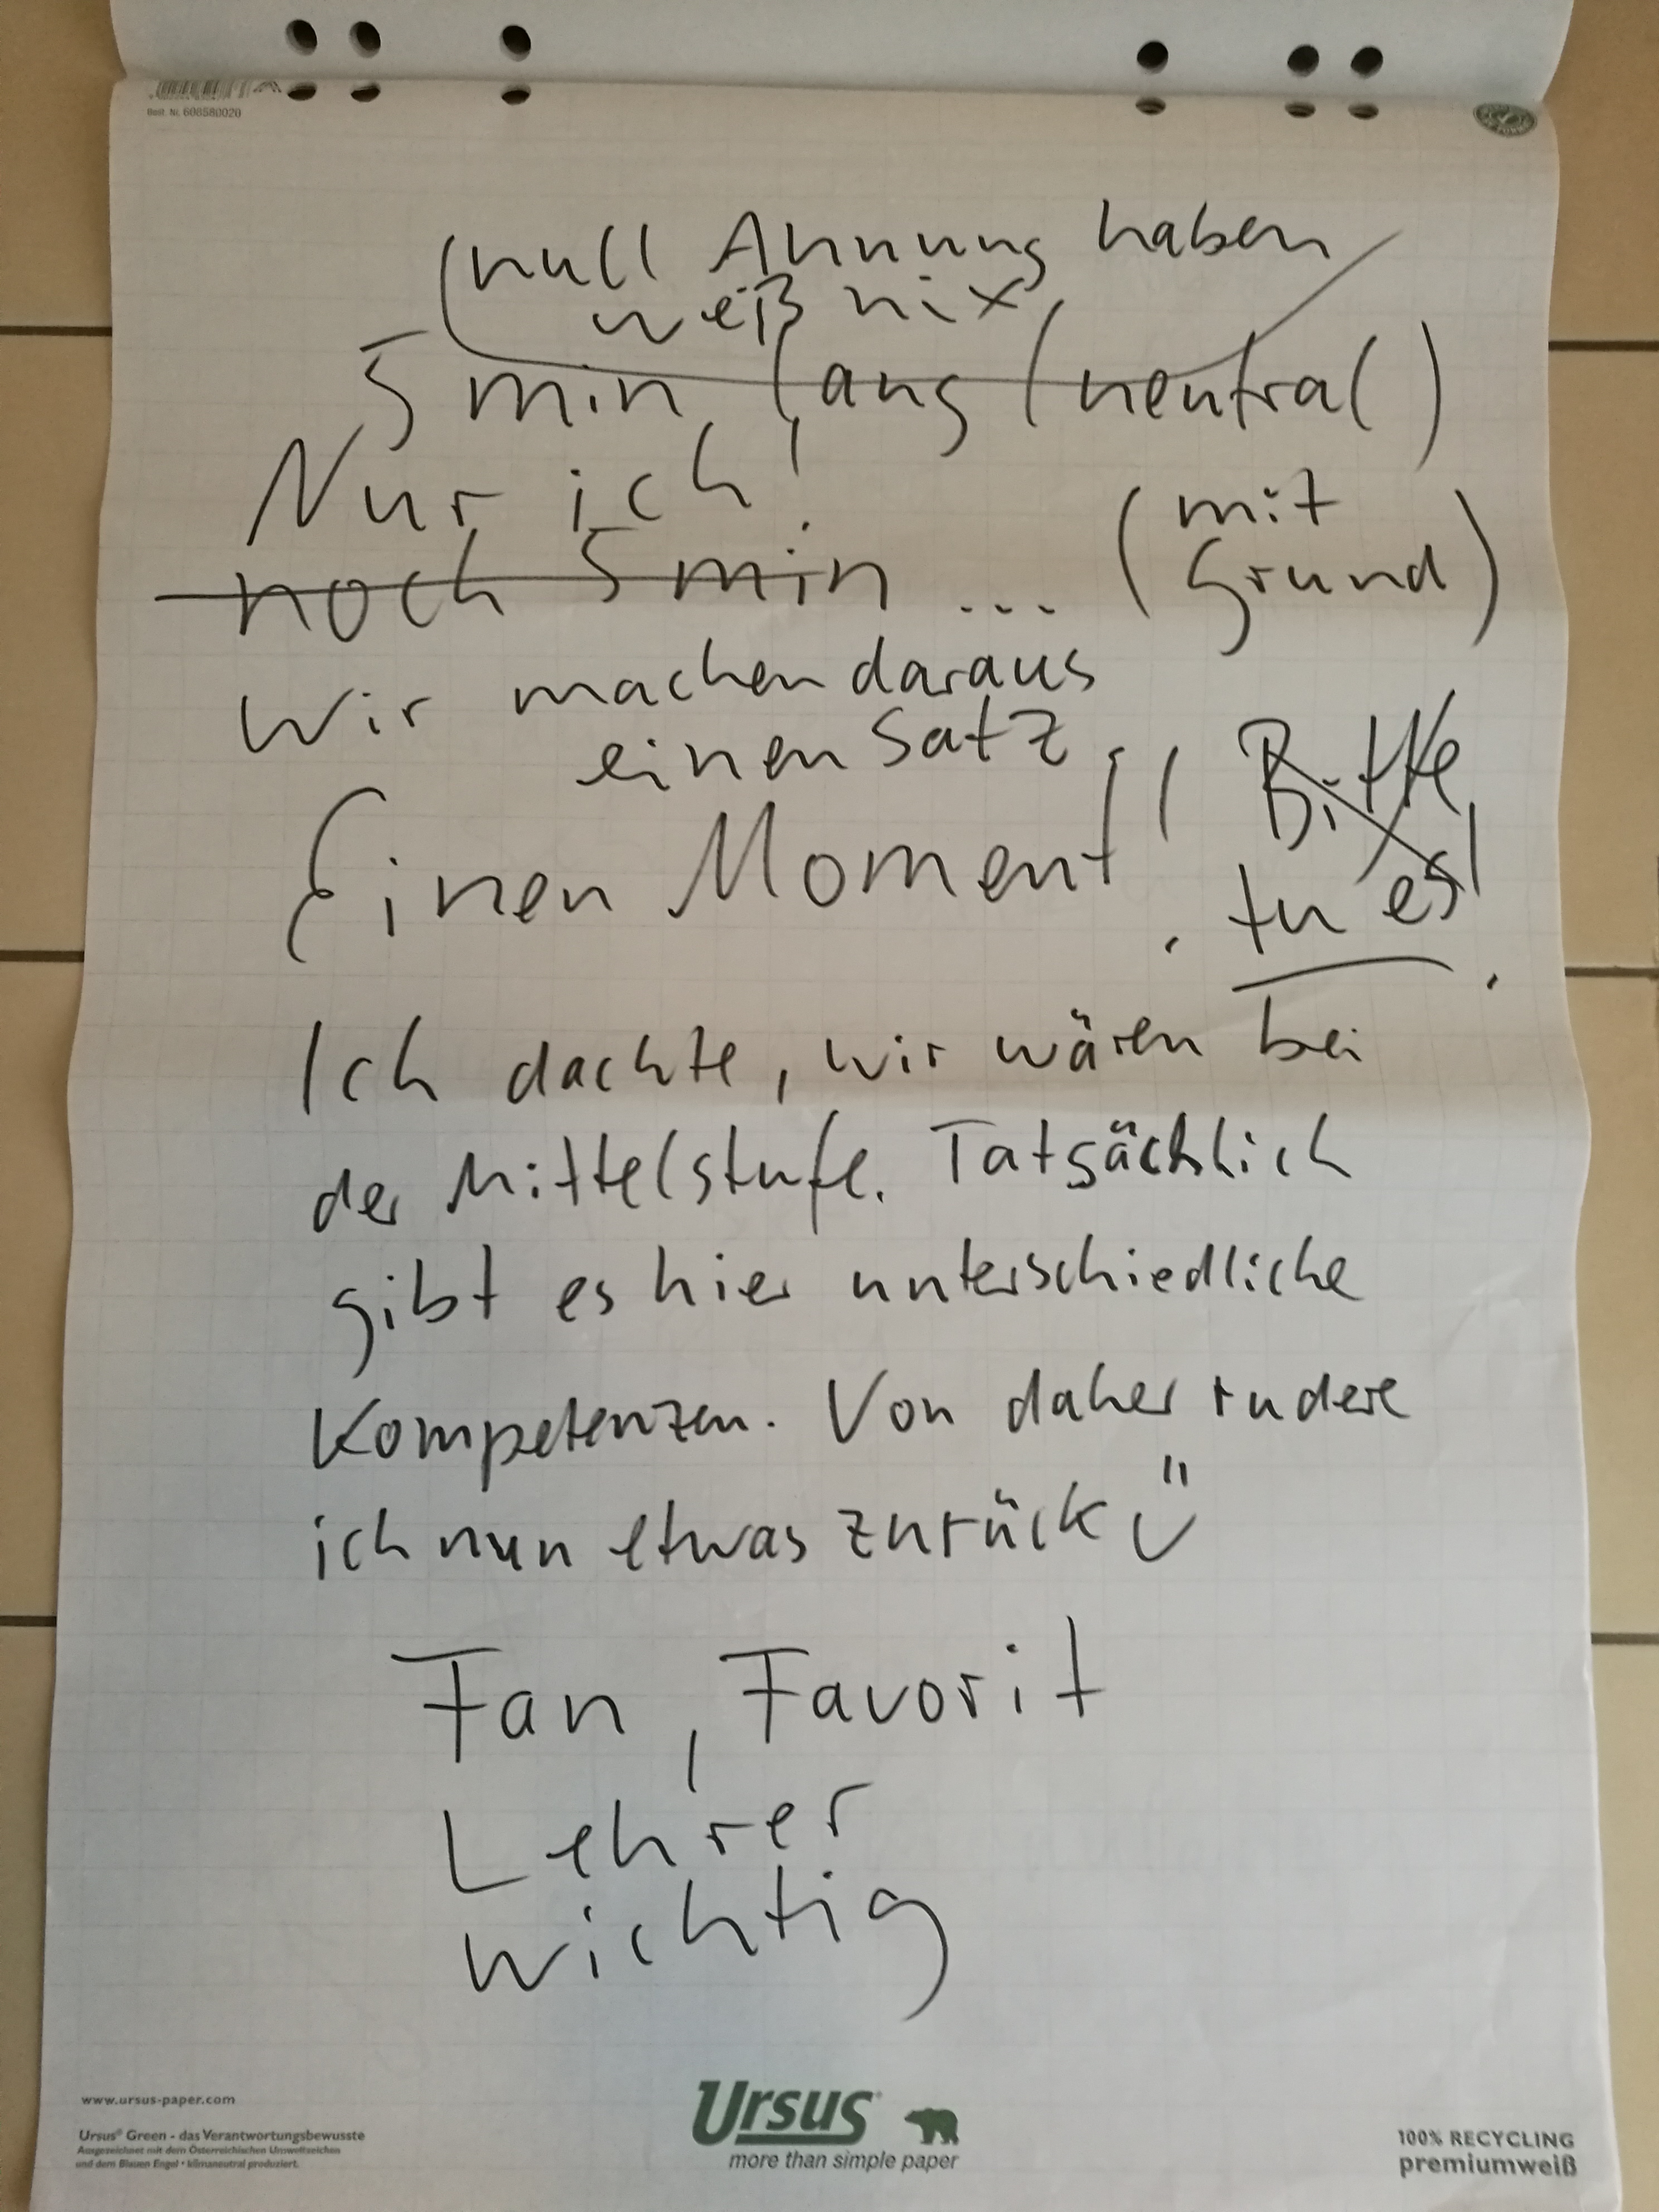 Best. Nr. 608580020
(null Ahnung haben
weiß nix
5 min lang (neutral)
Nur ich!
noch 5 min ... (mit
Grund)
Wir machen daraus
einen Satz
Einen Moment!! Bitte
tu es!
Ich dachte, wir wären bei
der Mittelstufe. Tatsächlich
gibt es hier unterschiedliche
Kompetenzen. Von daher rudere
ich nun etwas zurück
Fan, Favorit
Lehrer
wichtig
www.ursus-paper.com
Ursus® Green - das Verantwortungsbewusste
Ausgezeichnet mit dem Österreichischen Umweltzeichen
und dem Blauen Engel • klimaneutral produziert.
Ursus®
more than simple paper
100% RECYCLING
premiumweiß